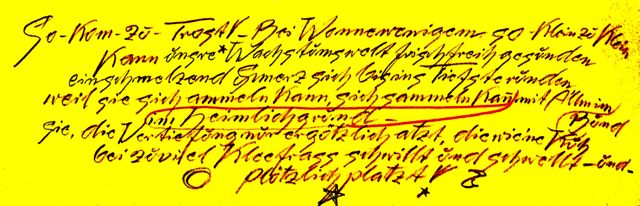 So-Kom-zu-Trost V- Bei Wonnewenigem so Klein zu Klein
Kann unsre * Wachstumswelt frisch freih gesunden
einschmelzend Smerz sich bis ins Tiefste runden
weil sie sich ammeln Kann, sich sammeln Kann mit Allm im Bund
im Heimlichgrund -
sie, die Vertiefung nur ergötzlich atzt, die wie 'ne Kuh
bei zuviel Kleefrass schwillt und schwellt - und -
plötzlich platzt V